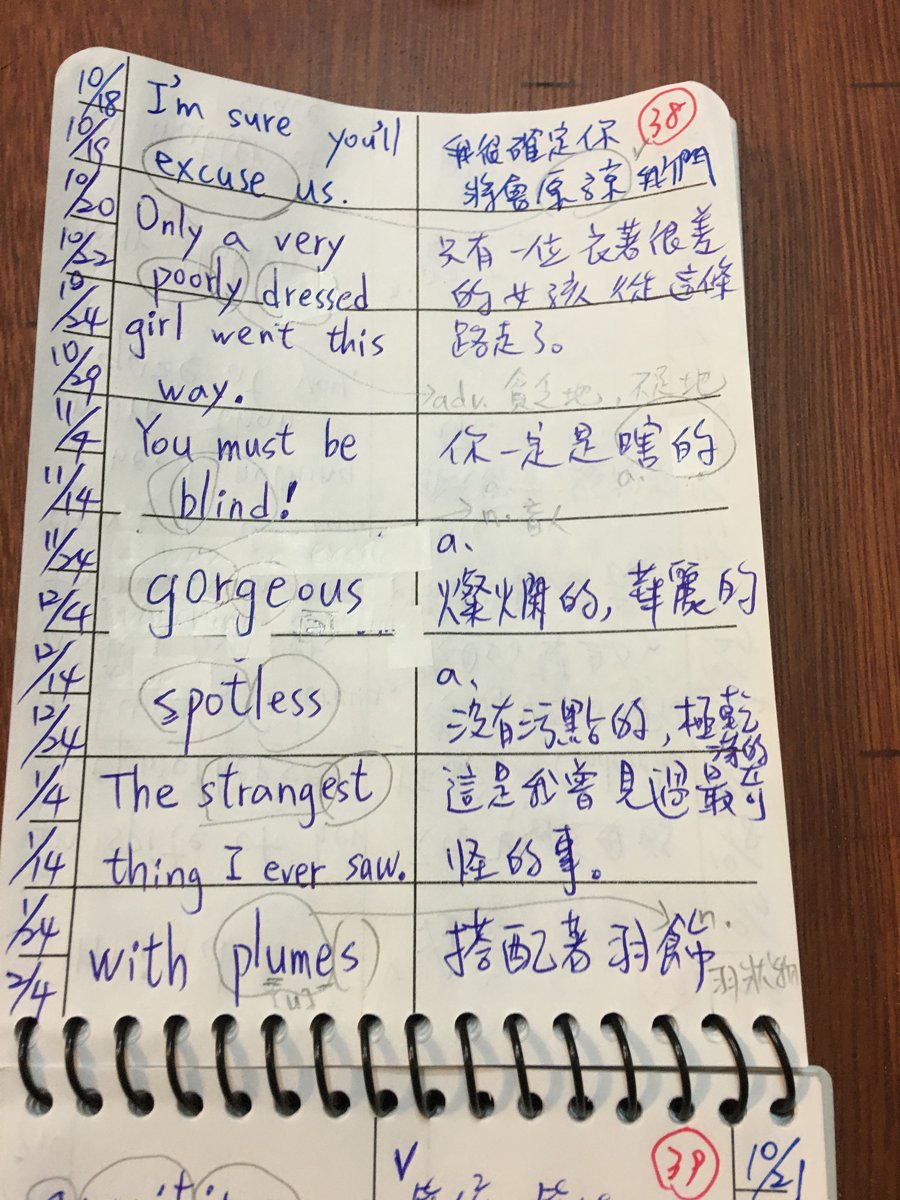 38
10/18
10/19
10/20
10/22
10/24
10/29
11/4
11/14
11/24
12/4
12/14
12/24
1/4
1/14
1/24
2/4
I'm sure you'll
excuse us.
我很確定你
將會原諒我們
Only a very
poorly dressed
girl went this
way.
只有一位衣著很差
的女孩從這條
路走了。
→adv. 貧乏地, 不足地
You must be
blind!
你一定是瞎的
a.
→ n. 盲人
gorgeous
a.
燦爛的, 華麗的
spotless
a.
沒有污點的, 極乾
淨的
The strangest
thing I ever saw.
這是我曾見過最奇
怪的事。
with plume(s)
[u]
搭配著羽飾
n.
羽狀物
39
10/21
v